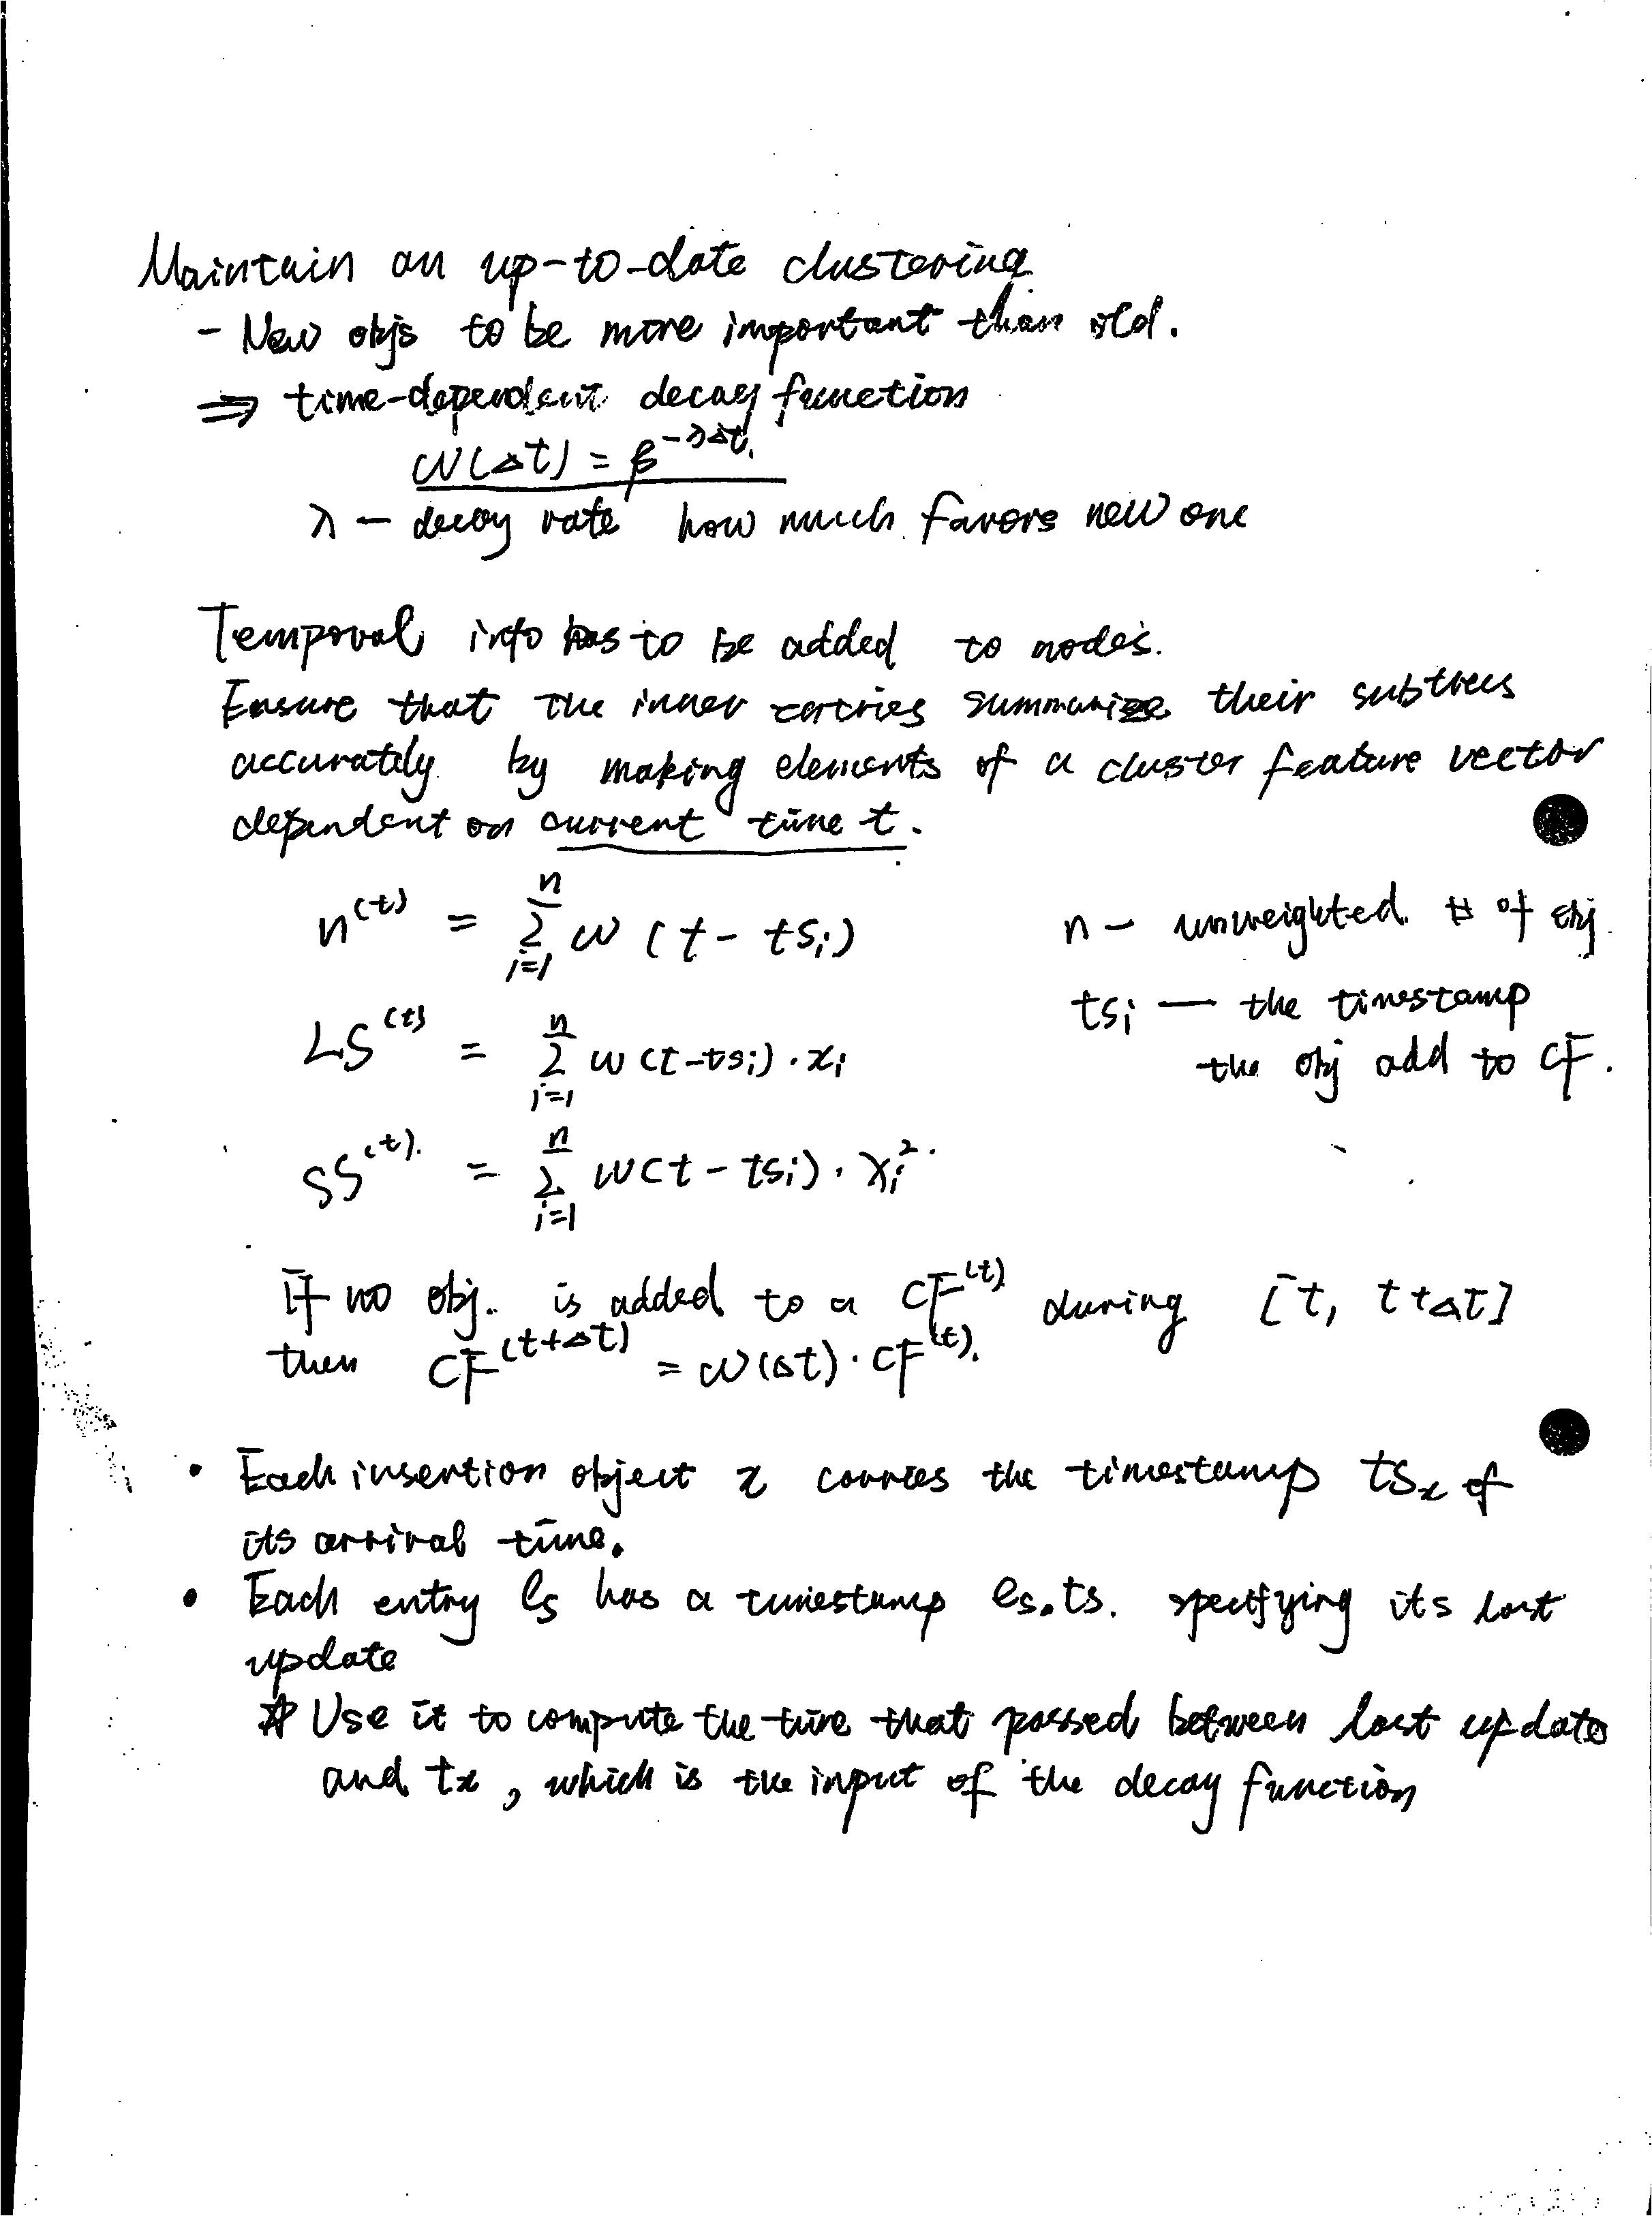 Maintain an up-to-date clustering
- New objs to be more important than old.
⇒ time-dependent decay function
ω(Δt) = β^{-λΔt}.
λ — decay rate how much favors new one
Temporal info has to be added to nodes.
Ensure that the inner entries summarize their subtrees
accurately by making elements of a cluster feature vector
dependent on current time t.
n^{(t)} = \sum_{i=1}^{n} ω (t - ts_i)
n — unweighted # of obj.
LS^{(t)} = \sum_{i=1}^{n} ω(t-ts_i) · x_i
ts_i — the timestamp
the obj add to CF.
SS^{(t)}. = \sum_{i=1}^{n} ω(t - ts_i) · x_i^2.
If no obj. is added to a CF^{(t)} during [t, t+Δt]
then CF^{(t+Δt)} = ω(Δt) · CF^{(t)}.
• Each insertion object x carries the timestamp ts_x of
its arrival time.
• Each entry e_s has a timestamp e_s.ts. specifying its last
update
* Use it to compute the time that passed between last update
and t_x, which is the input of the decay function